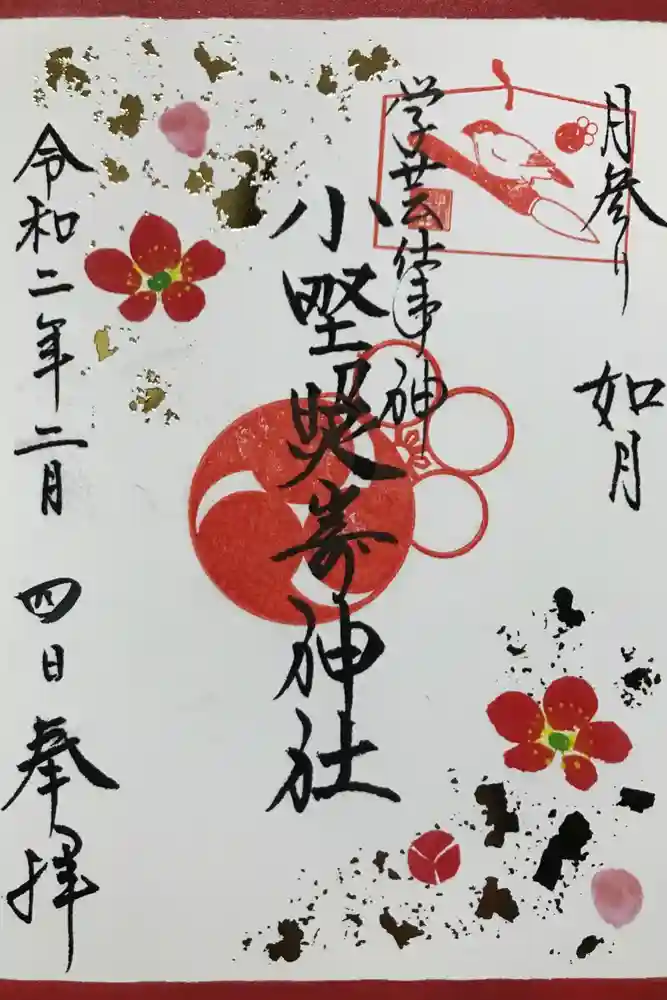 月参り 如月
学芸仕事神
小野照崎神社
令和二年二月 四日 奉拝